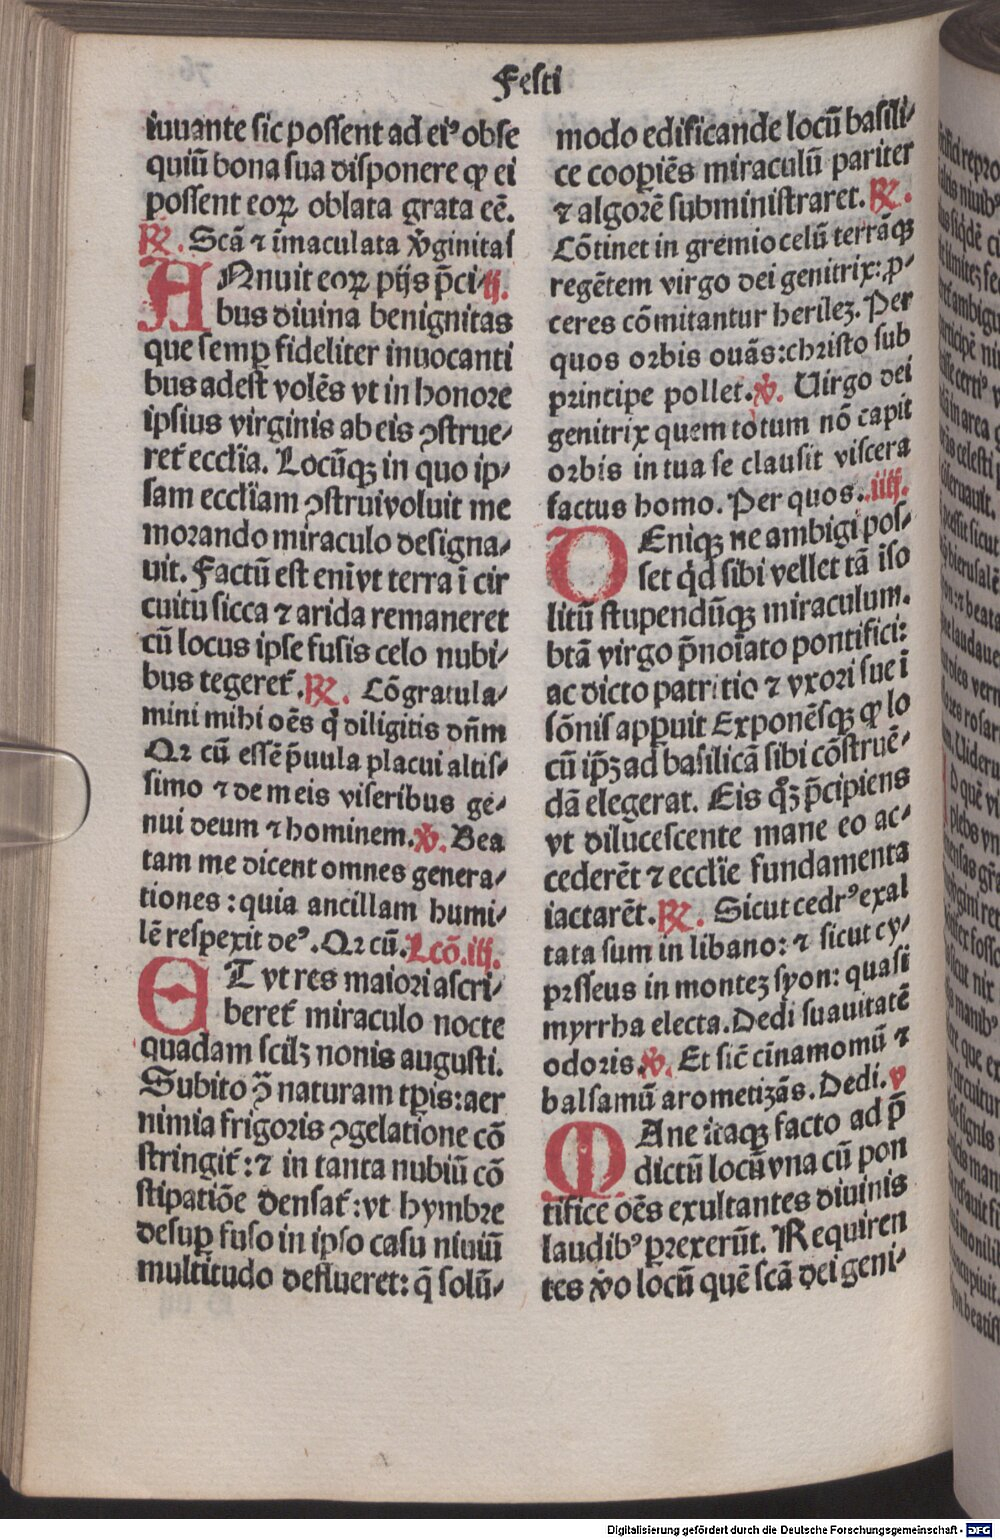 Festi
iuuante sic possent ad eiꝰ obse
quiū bona sua disponere ꝙ ei
possent eoꝝ oblata grata eē.
℟. Scā ⁊ īmaculata ꝟginitas
ANnuit eoꝝ pijs p̄ci- ij.
bus diuina benignitas
que semꝑ fideliter inuocanti
bus adest volēs vt in honore
ipsius virginis ab eis ꝯstrue-
ret᷑ eccl̄ia. Locūqꝫ in quo ip-
sam eccl̄iam ꝯstrui voluit me
morando miraculo designa-
uit. Factū est eni vt terra ī cir
cuitu sicca ⁊ arida remaneret
cū locus ipse fusis celo nubi-
bus tegeret᷑. ℟. Cōgratula-
mini mihi oēs q̇ diligitis dn̄m
Qꝛ cū essē p̄uula placui altis-
simo ⁊ de meis viseribus ge-
nui deum ⁊ hominem. ꝟ. Bea
tam me dicent omnes genera-
tiones: quia ancillam humi-
lē respexit deꝰ. Qꝛ cū. Lcō. iij.
ET vt res maiori ascri-
beret᷑ miraculo nocte
quadam scilꝫ nonis augusti.
Subito ꝯ̄ naturam tp̄is: aer
nimia frigoris ꝯgelatione cō
stringit᷑: ⁊ in tanta nubiū cō
stipatiōe densat᷑: vt hymbre
desuꝑ fuso in ipso casu niuiū
multitudo deflueret: q̄ solū-
modo edificande locū basili-
ce cooꝑiēs miraculū pariter
⁊ algorē subministraret. ℟.
Cōtinet in gremio celū terrāqꝫ
regētem virgo dei genitrix: ꝓ-
ceres cōmitantur herilez. Per
quos orbis ouās: christo sub
principe pollet. ꝟ. Uirgo dei
genitrix quem totum nō capit
orbis in tua se clausit viscera
factus homo. Per quos. iiij.
DEniqꝫ ne ambigi pos-
set qd̓ sibi vellet tā iso
litū stupendūqꝫ miraculum.
btā virgo p̄noīato pontifici:
ac dicto patritio ⁊ vxori sue ī
sōnis appuit Exponēsqꝫ ꝙ lo
cū ip̄ꝫ ad basilicā sibi cōstruē-
dā elegerat. Eis qꝫ p̄cipiens
vt dilucescente mane eo ac-
cederēt ⁊ eccl̄ie fundamenta
iactarēt. ℟. Sicut cedrꝰ exal
tata sum in libano: ⁊ sicut cy-
prsseus in montez syon: quasi
myrrha electa. Dedi suauitatē
odoris. ꝟ. Et sic̄ cīnamomū ⁊
balsamū arometizās. Dedi. v
MAne itaqꝫ facto ad p̄
dictū locū vna cū pon
tifice oēs exultantes diuinis
laudibꝰ ꝑrexerūt. Requiren
tes ꝟo locū quē scā dei geni-